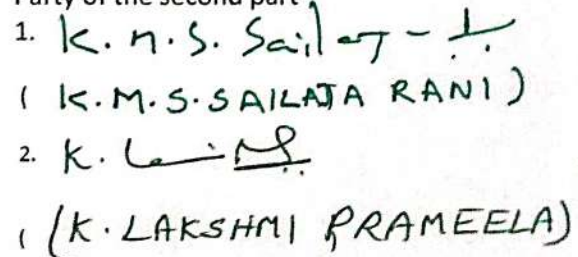 Party of the second part
1. K. n. S. Sailaj
( K.M.S.SAILAJA RANI )
2. K. L
( K. LAKSHMI PRAMEELA)